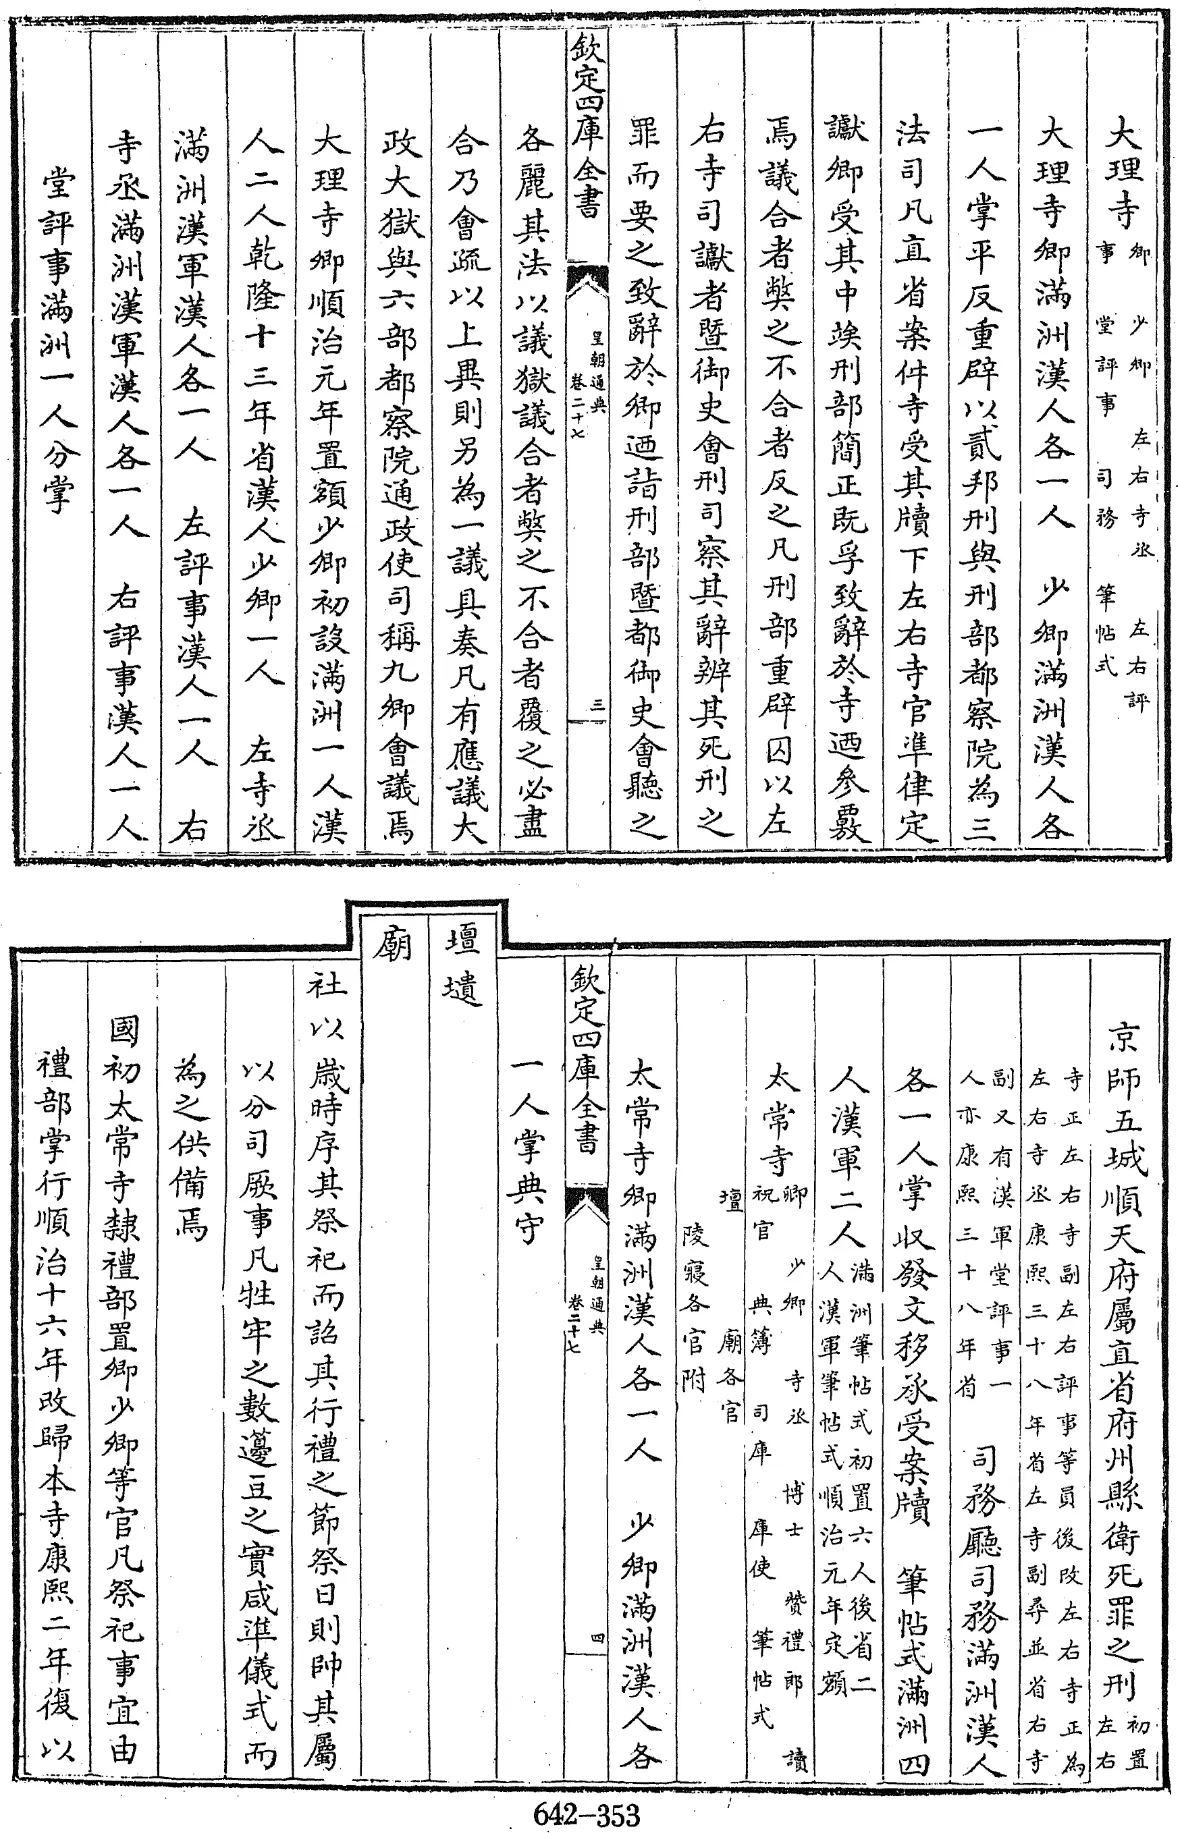 大理寺卿 少卿 左右寺丞 左右評
事 堂評事 司務 筆帖式
大理寺卿滿洲漢人各一人 少卿滿洲漢人各
一人掌平反重辟以貳邦刑與刑部都察院為三
法司凡直省案件寺受其牘下左右寺官準律定
讞卿受其中竢刑部簡正既孚致辭於寺迺參覈
焉議合者獘之不合者反之凡刑部重辟囚以左
右寺司讞者暨御史會刑司察其辭辨其死刑之
罪而要之致辭於卿迺詣刑部暨都御史會聽之
欽定四庫全書 皇朝通典 卷二十七 三
各麗其法以議獄議合者獘之不合者覆之必盡
合乃會疏以上異則另為一議具奏凡有應議大
政大獄與六部都察院通政使司稱九卿會議焉
大理寺卿順治元年置額少卿初設滿洲一人漢
人二人乾隆十三年省漢人少卿一人 左寺丞
滿洲漢軍漢人各一人 左評事漢人一人 右
寺丞滿洲漢軍漢人各一人 右評事漢人一人
堂評事滿洲一人分掌
京師五城順天府屬直省府州縣衛死罪之刑初置
左右
寺正左右寺副左右評事等員後改左右寺正為
左右寺丞康熙三十八年省左寺副尋並省右寺
副又有漢軍堂評事一
人亦康熙三十八年省 司務廳司務滿洲漢人
各一人掌收發文移承受案牘 筆帖式滿洲四
人漢軍二人滿洲筆帖式初置六人後省二
人漢軍筆帖式順治元年定額
太常寺卿 少卿 寺丞 博士 贊禮郎 讀
祝官 典簿 司庫 庫使 筆帖式
壇 廟各官
陵寢各官附
太常寺卿滿洲漢人各一人 少卿滿洲漢人各
欽定四庫全書 皇朝通典 卷二十七 四
一人掌典守
壇壝
廟
社以歲時序其祭祀而詔其行禮之節祭日則帥其屬
以分司厥事凡牲牢之數籩豆之實咸準儀式而
為之供備焉
國初太常寺隸禮部置卿少卿等官凡祭祀事宜由
禮部掌行順治十六年改歸本寺康熙二年復以
642-353